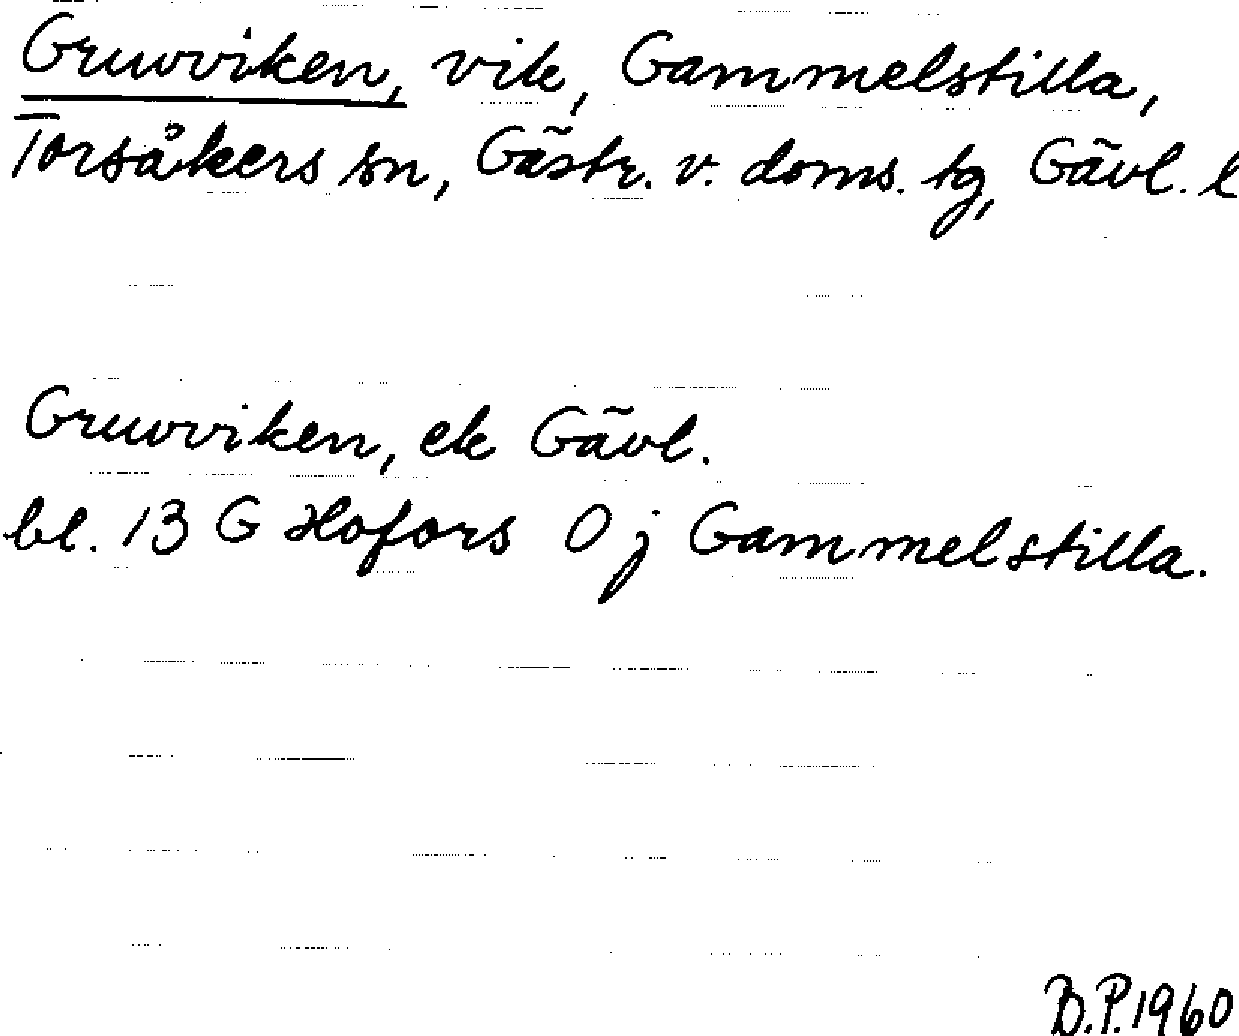 Gruvviken, vik, Gammelstilla,
Torsåkers sn, Gästr. v. doms. tg, Gävl. l
Gruvviken, ek Gävl.
bl. 13 G Hofors 0 j Gammelstilla.
B.P. 1960